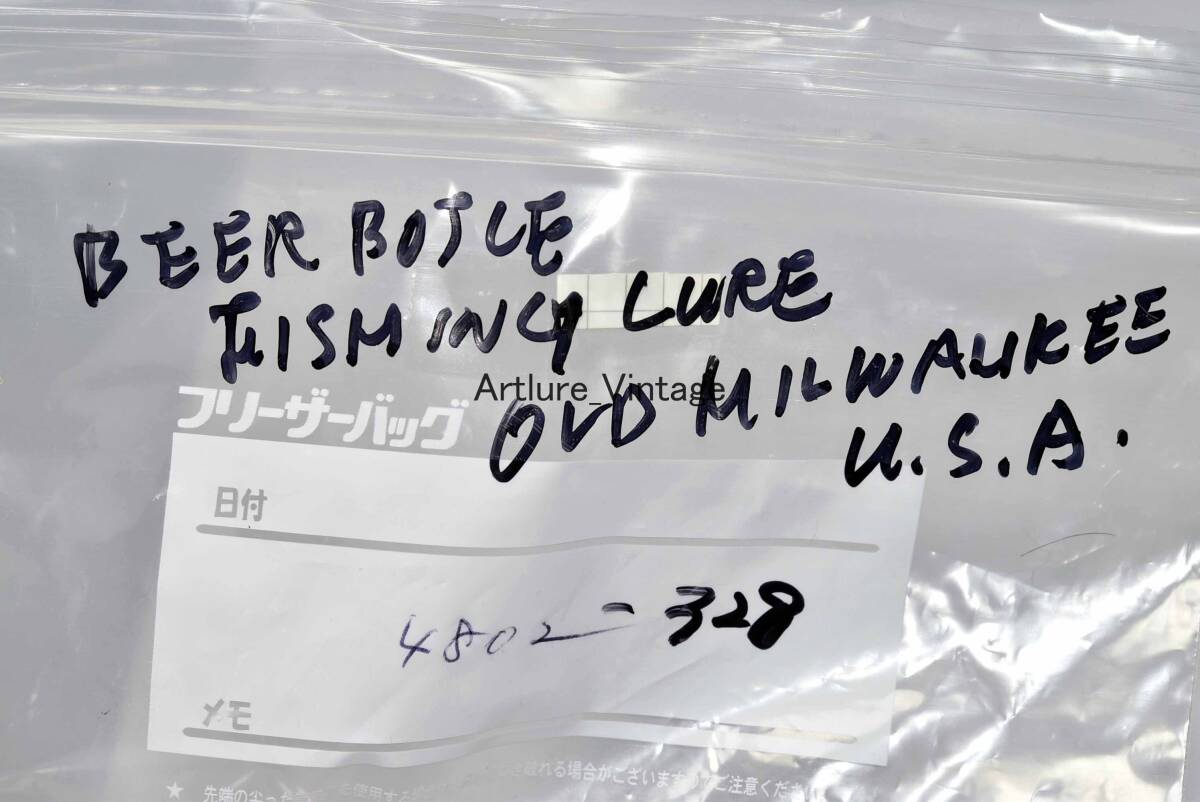 BEER BOTLE
FISHING LURE
Artlure_Vintage
OLD MILWAUKEE
フリーザーバッグ
U.S.A.
日付
4802-328
メモ
れる場合がございますのでご注意くださ
★ 先端の尖った
使用する